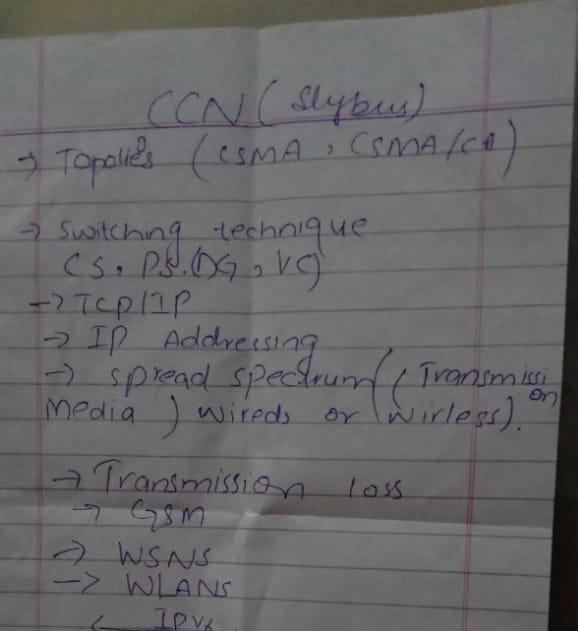 CCN (Slybus)
→ Topolies (CSMA, CSMA/CA)
→ Switching technique
CS, PS.(DG, VC)
→ TCP/IP
→ IP Addressing
→ Spread Spectrum ( (Transmission
Media ) wireds or wirless).
→ Transmission loss
→ GSM
→ WSNS
→ WLANS